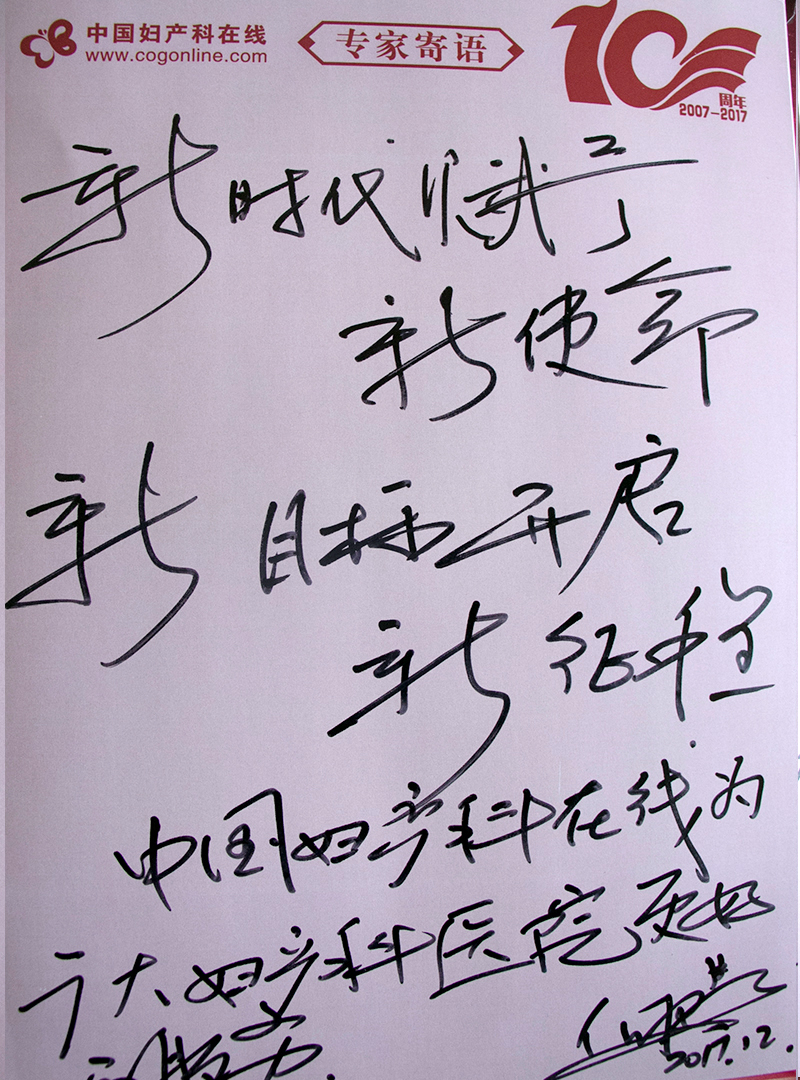 中国妇产科在线
www.cogonline.com
专家寄语
10
周年
2007-2017
新时代赋予
新使命
新目标开启
新征程
中国妇产科在线为
广大妇产科医院更好
服务
2017.12.